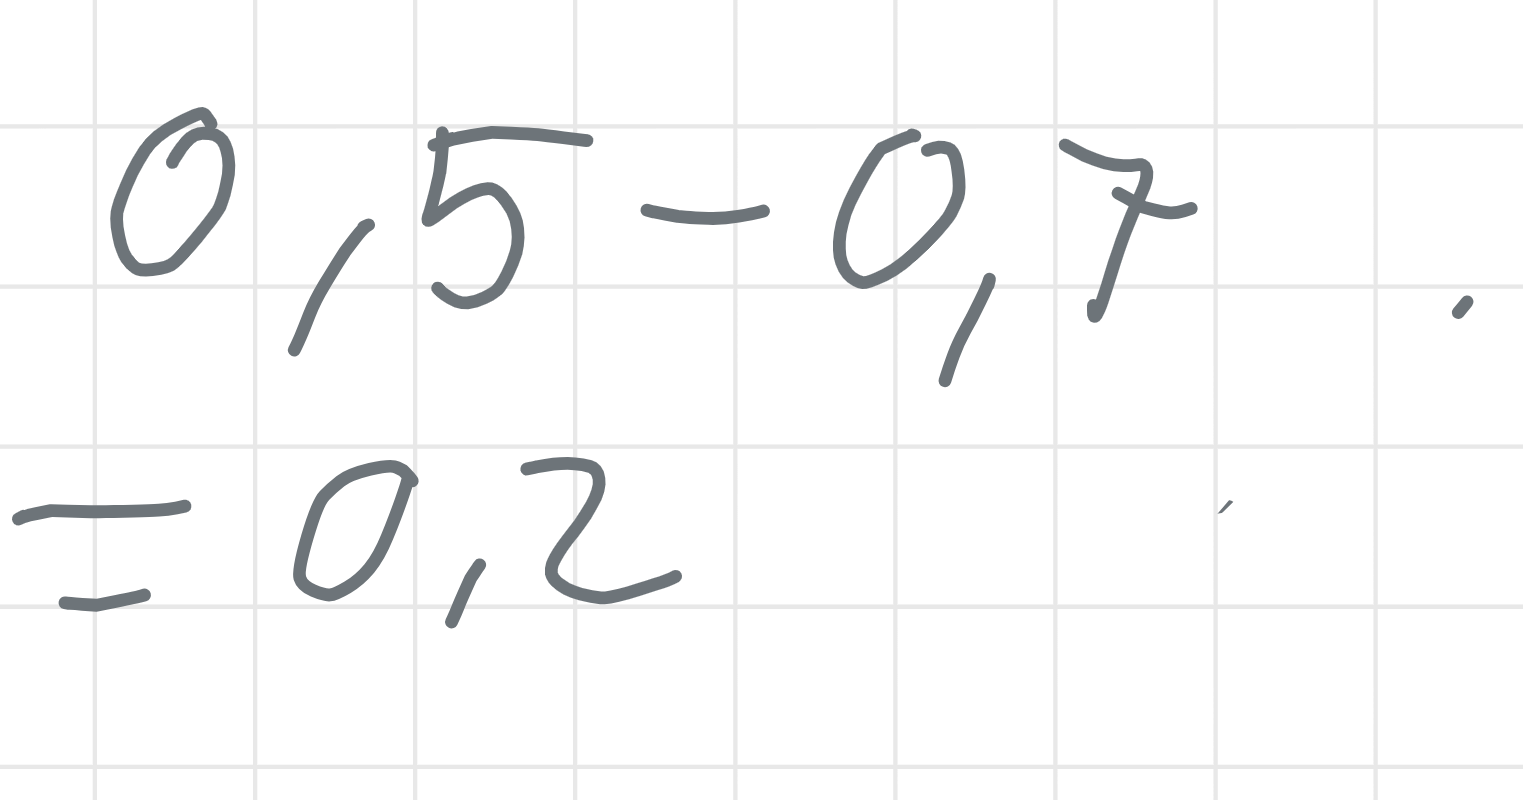 0,5-0,7
= 0,2